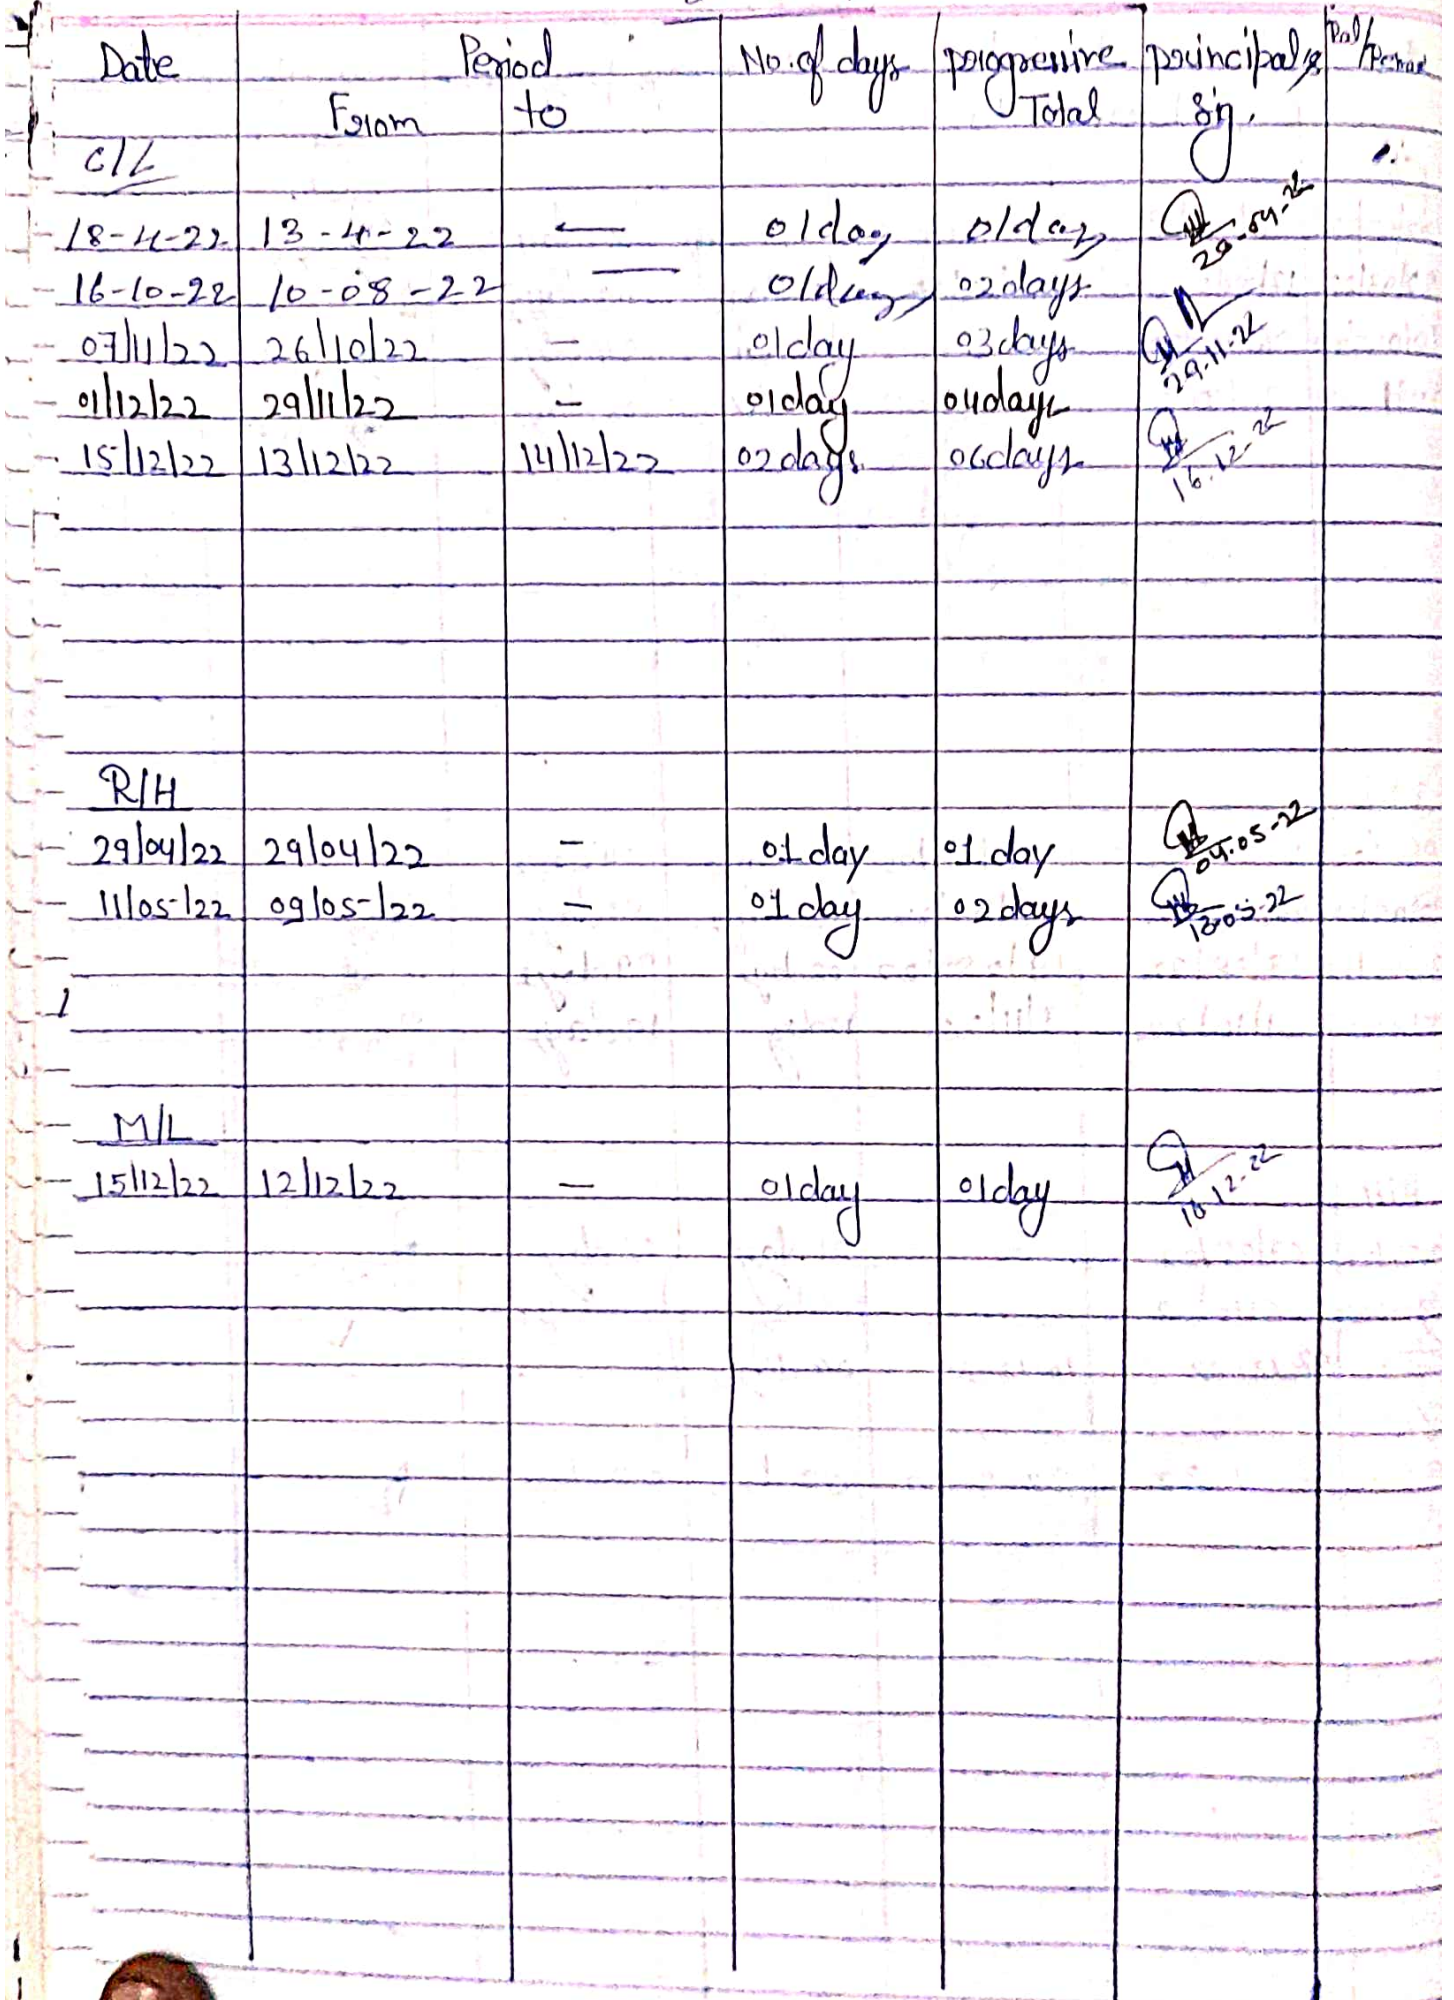 Date Period No. of days progressive principal's
From to Total sig.
C/L
18-4-22 13-4-22 — 01day 01day 29-04-22
16-10-22 10-08-22 — 01day 02days
07/11/22 26/10/22 — 01day 03days 29-11-22
01/12/22 29/11/22 — 01day 04days
15/12/22 13/12/22 14/12/22 02days 06days 16.12.22
R/H
29/04/22 29/04/22 — 01 day 01 day 04.05-22
11/05/22 09/05/22 — 01 day 02 days
M/L
15/12/22 12/12/22 — 01day 01day 16.12-22